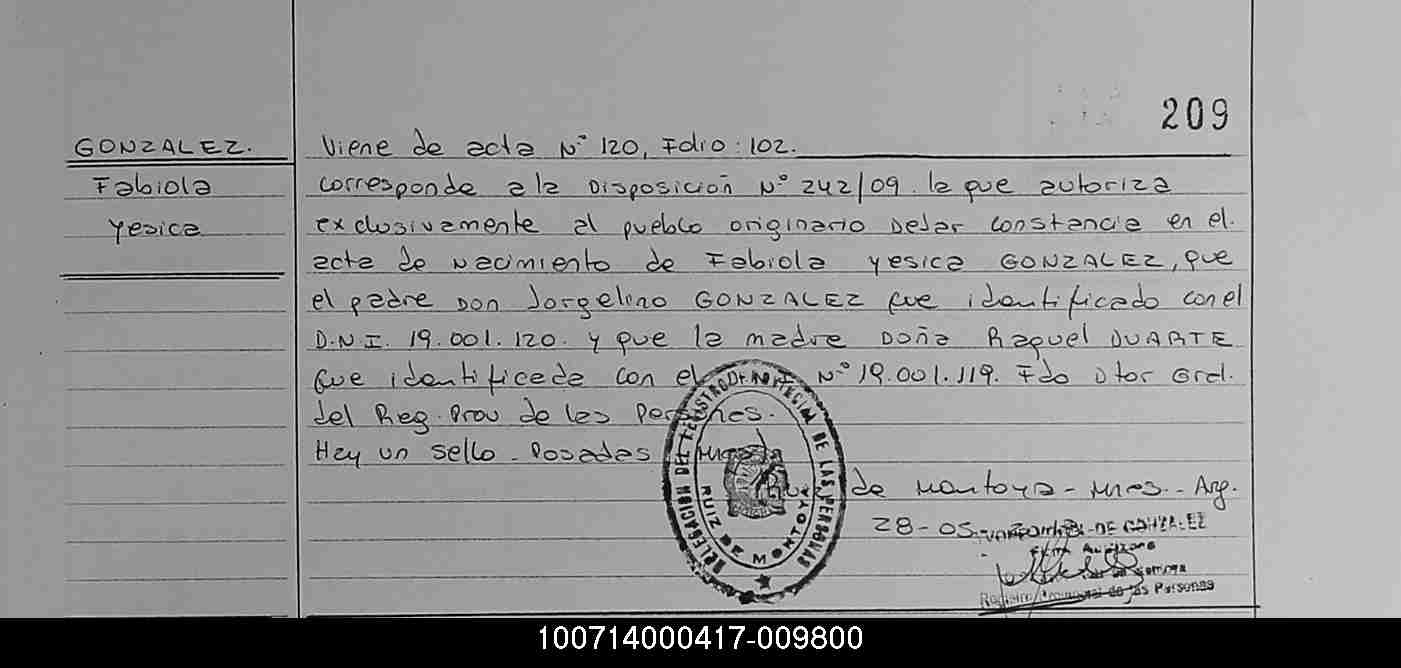 209
GONZALEZ.
Fabiola
Yesica
Viene de acta N° 120, Folio: 102.
corresponde a la Disposición N° 242/09. la que autoriza
exclusivamente al pueblo originario Dejar constancia en el
acta de Nacimiento de Fabiola Yesica GONZALEZ, que
el padre Don Jorgelino GONZALEZ fue identificado con el
D.N.I. 19.001.120. y que la madre Doña Raquel DUARTE
fue identificada con el N° 19.001.119. Fdo Dtor Gral.
del Reg. Prov de las Personas.
Hay un sello - Posadas
de Montoya - Mnes - Arg.
28-05- DE GONZALEZ
DELEGACION DEL REGISTRO PROVINCIAL DE LAS PERSONAS
RUIZ DE MONTOYA
Registro Provincial de las Personas
100714000417-009800